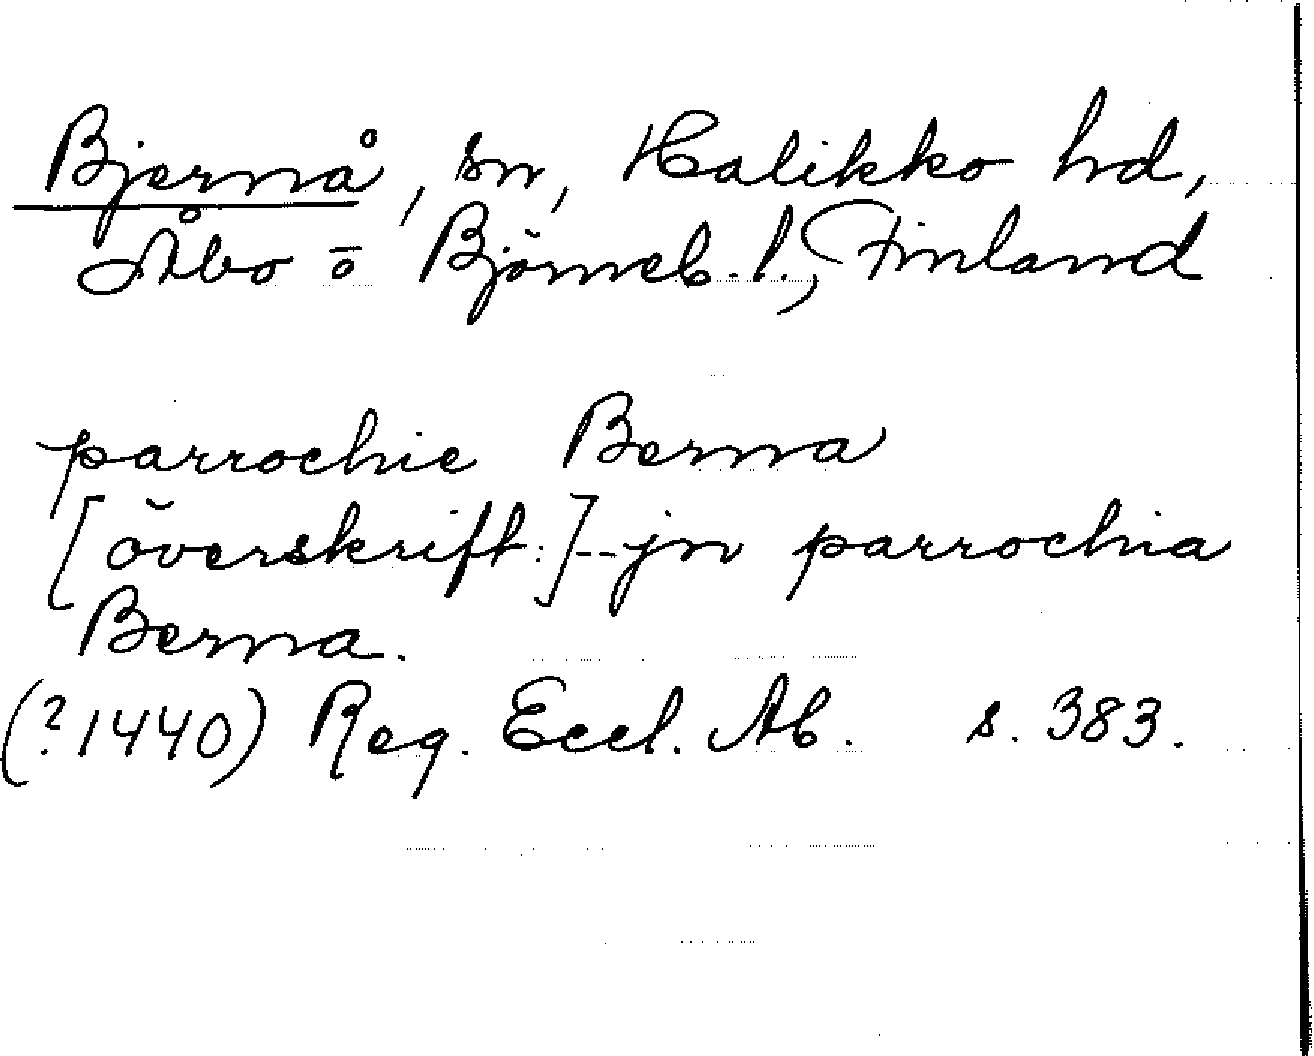 Bjernå, sn, Halikko hd,
Åbo o Björneb. l., Finland
parrochie Berna
[överskift:]--jn parrochia
Berna.
(?1440) Reg. Eccl. Ab. s. 383.